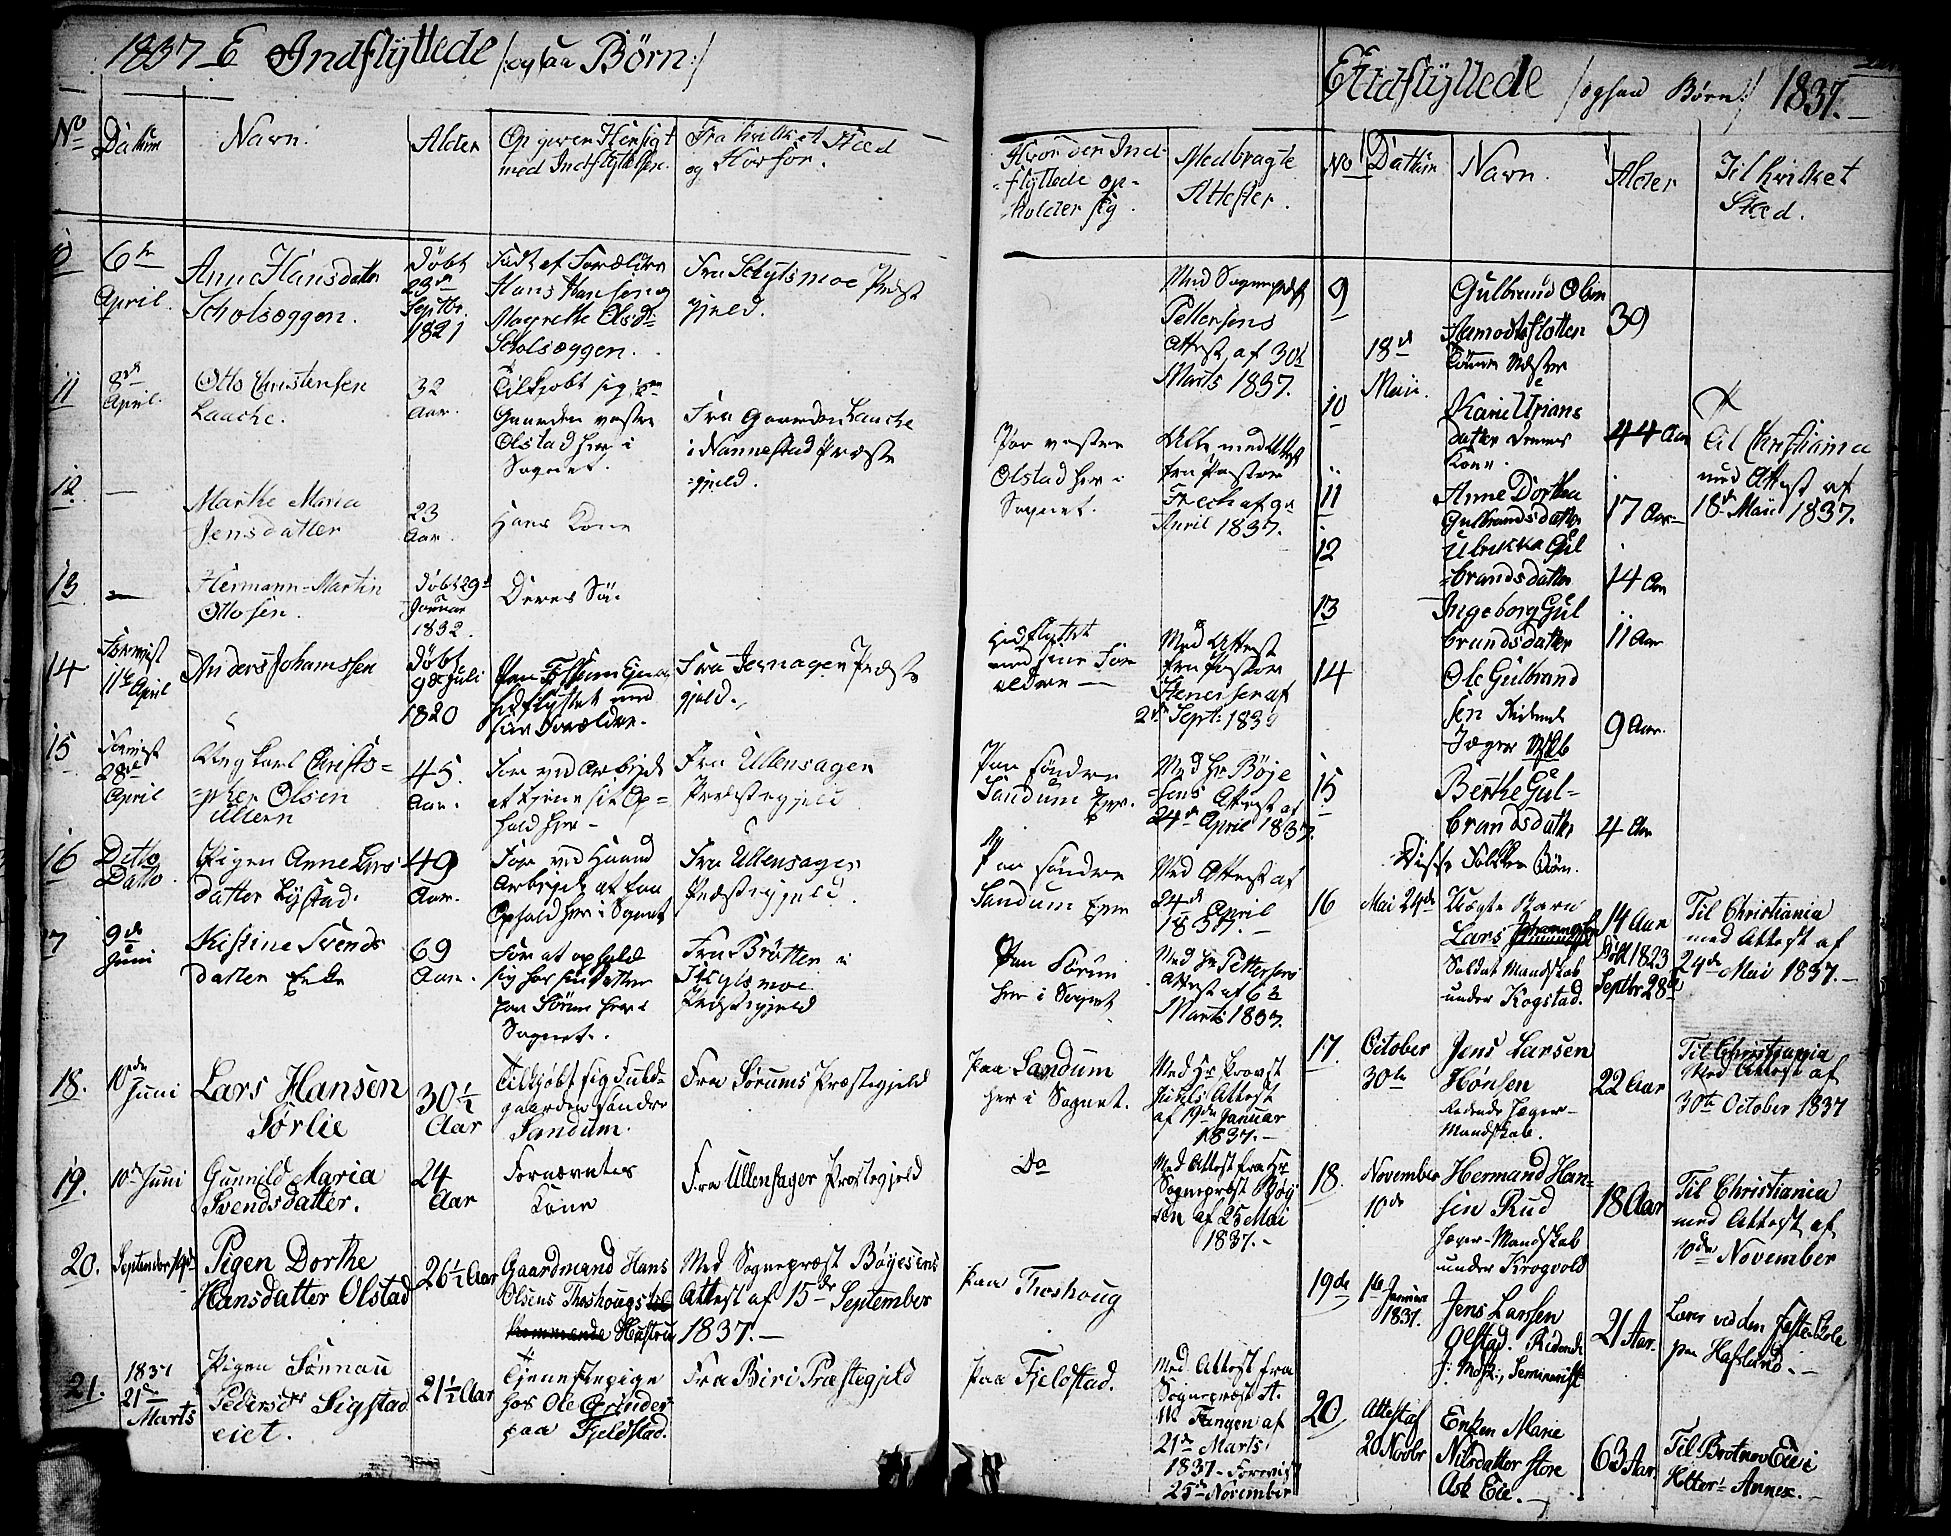 1837 E Indflyttede /:ogsaa Børn:/
No
Datum
Navn.
Alder
Opgiven Hensigt
med Indflyttelsen.
Fra hvilket Stæd
og Hvorfor.
Hvor den Ind-
flyttede op-
holder sig
Medbragte
Attester.
6te
April.
Anne Hansdatter
Scholsæggen.
Døbt
23de
Septbr.
1821
Født af Forældre
Hans Hansen og
Magrethe Olsdr
Scholsæggen.
Fra Schytsmoe Præste
gjeld.
Med Sognepræst
Pettersens
Attest af 30te
Marts 1837.
11
8de
April.
Otto Christensen
Laache.
32
Aar.
Tilkjøbt sig
Gaarden vestre
Olstad her i
Sognet.
Fra Gaarden Laache
i Nannestad Præste
gjeld.
Paa vestre
Olstad her i
Sognet.
fra Pastor
April 1837.
12
—
Marthe Maria
Jensdatter
23
Aar.
Hans Kone
13
—
Hermann Martin
Ottosen.
Døbt 29de
Januar
1832.
Deres Sön
14
Forevist
11te April
Anders Johannssen
Døbt
9de Juli
1820
hidflyttet med
sine Forældre.
Fra Jevnager Præste
gjeld.
Hidflyttet
med sine For
ældre —
Med Attest
fra Pastor
Stenersen af
2den Sept:
15
Forevist
28de
April
Ungkarl Christo-
pher Olsen
Ullern
45.
Aar.
For ved Arbejde
at tjene sit Op-
hold her -
Fra Ullensager
Præstegjeld
Paa søndre
Sandum Eger.
Med Hr. Böje
sens Attest af
24de April 1837.
16
Ditto
Datto
Pigen Anne Lars
datter Lystad.
49
Aar.
For ved Haand
Arbejde at faa
Ophold her i Sognet
Fra Ullensager
Præstegjeld.
Paa søndre
Sandum Eger
Med Attest af
24de April
1837. -
17
9de
Juni
Kistine Svends
datter Enke
69
Aar.
For at opholde
sig hos sin datter
paa Sörum her i
Sognet.
Fra Bråtten i
Præstegjeld
Paa Sörum
her i Sognet
Med Hr Pettersens
Attest af 6te
Marts 1837.
18.
10de
Juni
Lars Hansen
Sørlie
30½
Aar
Tilkjøbt sig Fuld-
gaarden søndre
Sandum.
Fra Sørums Præstegjeld
Paa Sandum
her i Sognet.
Med Hr Provst
Attest
af 19de Januar
1837. -
19.
10de Juni
Gunnild Maria
Svendsdatter.
24
Aar
Fornævntes
Kone
Fra Ullensager Præstegjeld
Do
Med Attest fra Hr
Sognepræst Bøy
sen af 25 Mai
1837. -
20.
Pigen Dorthe
Hansdatter Olstad
26½ Aar
Gaardmand Hans
Olsens Thoshougs
kommende Hustru
Med Sognepræst Bøyesens
Attest af 15de September
1837. —
Paa Thoshoug
21.
1837
21de
Marts
Pigen Sönnau
Pedersdtr Sigstad
eiet.
21½ Aar
Tjenestepige
hos Ole Grinder
paa Fjeldstad.
Fra Biri Præstegjeld
Paa Fjeldstad.
Med Attest fra
Sognepræst A.
W. Fangen af
21de Marts
1837 - Forevist
25de November
E Udflyttede /ogsaa Børn:/ 1837. —
No
Datum
Navn.
Alder
Til hvilket
Stæd.
9
18de
Maii.
Gulbrand Olsen
39
10
Karie Urians
datter
Kone.
44 Aar
Til Christiania
med Attest af
18de Maii 1837.
11
Anne Dorthea
Gulbrandsdatter
17 Aar
12
Ulrikka Gul
brandsdatter
14 Aar
13
Ingeborg Gul
brandsdatter
11 Aar
14
Ole Gulbrand
sen Ridende
Jæger
9 Aar.
15
Berthe Gul-
brandsdatter
4 Aar
Disse Folkes Børn.
16
Mai 24de
Uægte Barn
Lars
Soldat Mandskab
under Kogstad.
14 Aar
Døbt 1823
Septbr 28de
Til Christiania
med Attest af
24de Mai 1837. —
17.
October
30te
Jens Larsen
Hønsen
Ridende Jæger-
Mandskab.
22 Aar
Til Christiania
Med Attest af
30te October 1837
18.
November
10de
Hermand Han-
sen Rud
Jæger-Mandskab
under Krogvold
18 Aar
Til Christiania
med Attest af
10de November
19de
1te Januar
1837.
Jens Larssen
Olstad. Ridende
J: Mdsk:, Seminarist
21 Aar.
Lærer ved den faste Skole
paa Hafslund. —
20,
Attest af
20 Novbr
Enken Marie
Nilsdatter Store
Ask Eie. —
63 Aar.
Til Brotnov Eie i
Holter Annex. —